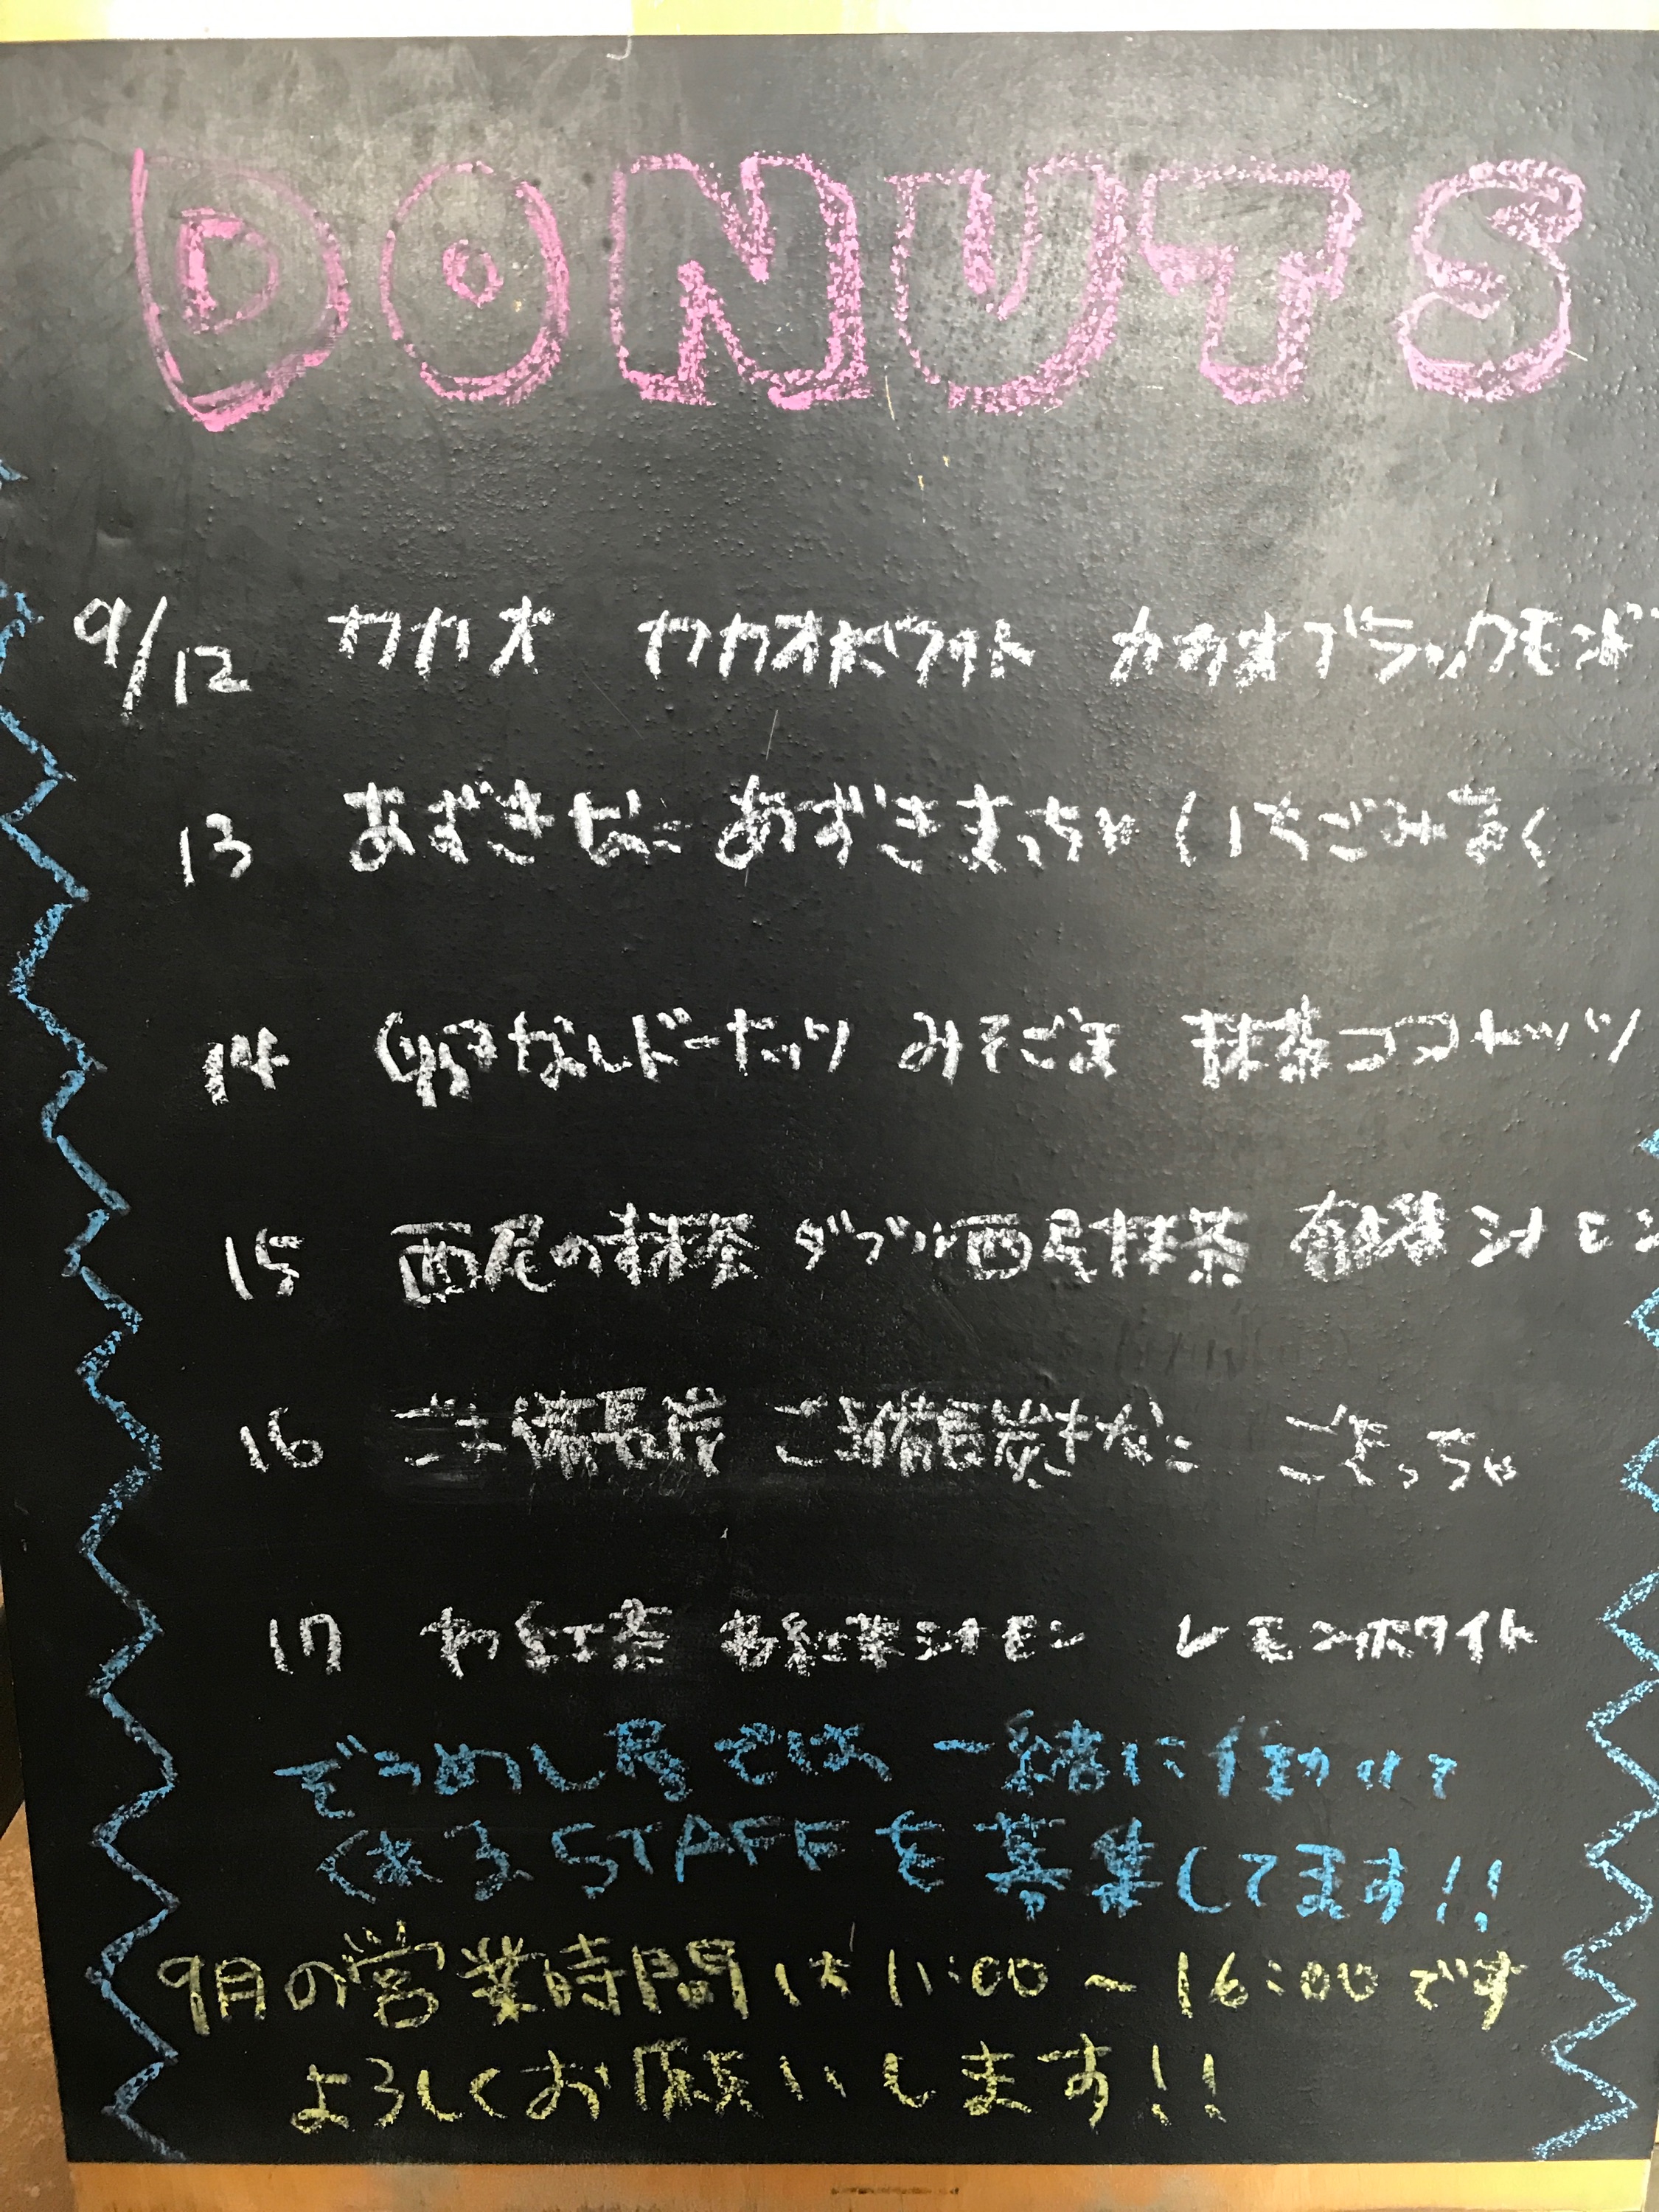 DONUTS
9/12 カカオ カカオホワイト カカオブラック
13 あずききなこ あずきまっちゃ いちごみるく
14 卵なしドーナッツ みそごま 抹茶ココナッツ
15 西尾の抹茶 ダブル西尾抹茶 シナモン
16 ごま備長炭 ごま備長炭きなこ ごまっちゃ
17 わ紅茶 わ紅茶シナモン レモンホワイト
でっめし屋では 一緒に働いて
くれるSTAFFを募集してます!!
9月の営業時間は11:00〜16:00です
よろしくお願いします!!